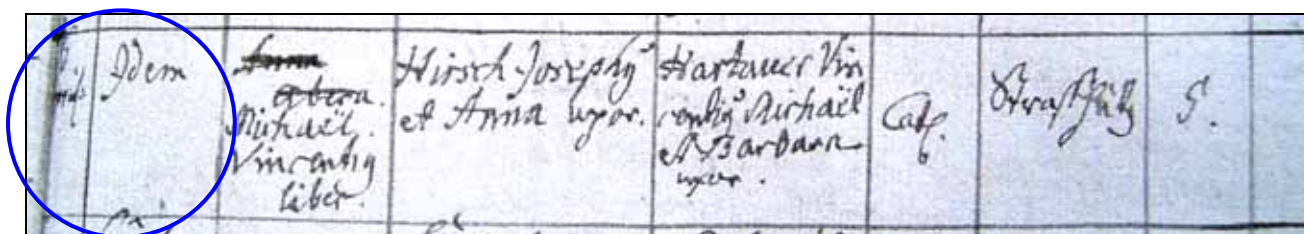 Idem
Anna
Michaël.
Vincentiy
liber.
Hirsch Josephy
et Anna uxor.
Hartauer Vin
centiy Michaël
et Barbara
uxor.
Cath.
5.